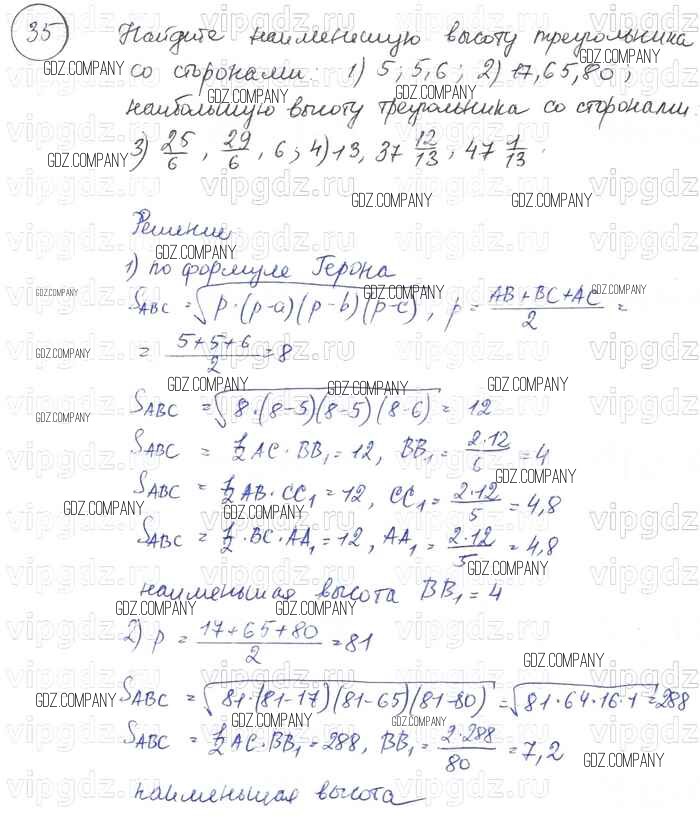 35
Найдите наименьшую высоту треугольника
со сторонами: 1) 5; 5, 6; 2) 17, 65, 80;
наибольшую высоту треугольника со сторонами:
3) 25/6, 29/6, 6; 4) 13, 37 12/13, 47 1/13.
Решение
1) по формуле Герона
S_ABC = √(p·(p-a)(p-b)(p-c)), p = (AB+BC+AC)/2 =
= (5+5+6)/2 = 8
S_ABC = √(8·(8-5)(8-5)(8-6)) = 12
S_ABC = 1/2 AC·BB₁ = 12, BB₁ = (2·12)/6 = 4
S_ABC = 1/2 AB·CC₁ = 12, CC₁ = (2·12)/5 = 4,8
S_ABC = 1/2·BC·AA₁ = 12, AA₁ = (2·12)/5 = 4,8
наименьшая высота BB₁ = 4
2) p = (17+65+80)/2 = 81
S_ABC = √(81·(81-17)(81-65)(81-80)) = √(81·64·16·1) = 288
S_ABC = 1/2 AC·BB₁ = 288, BB₁ = (2·288)/80 = 7,2
наименьшая высота